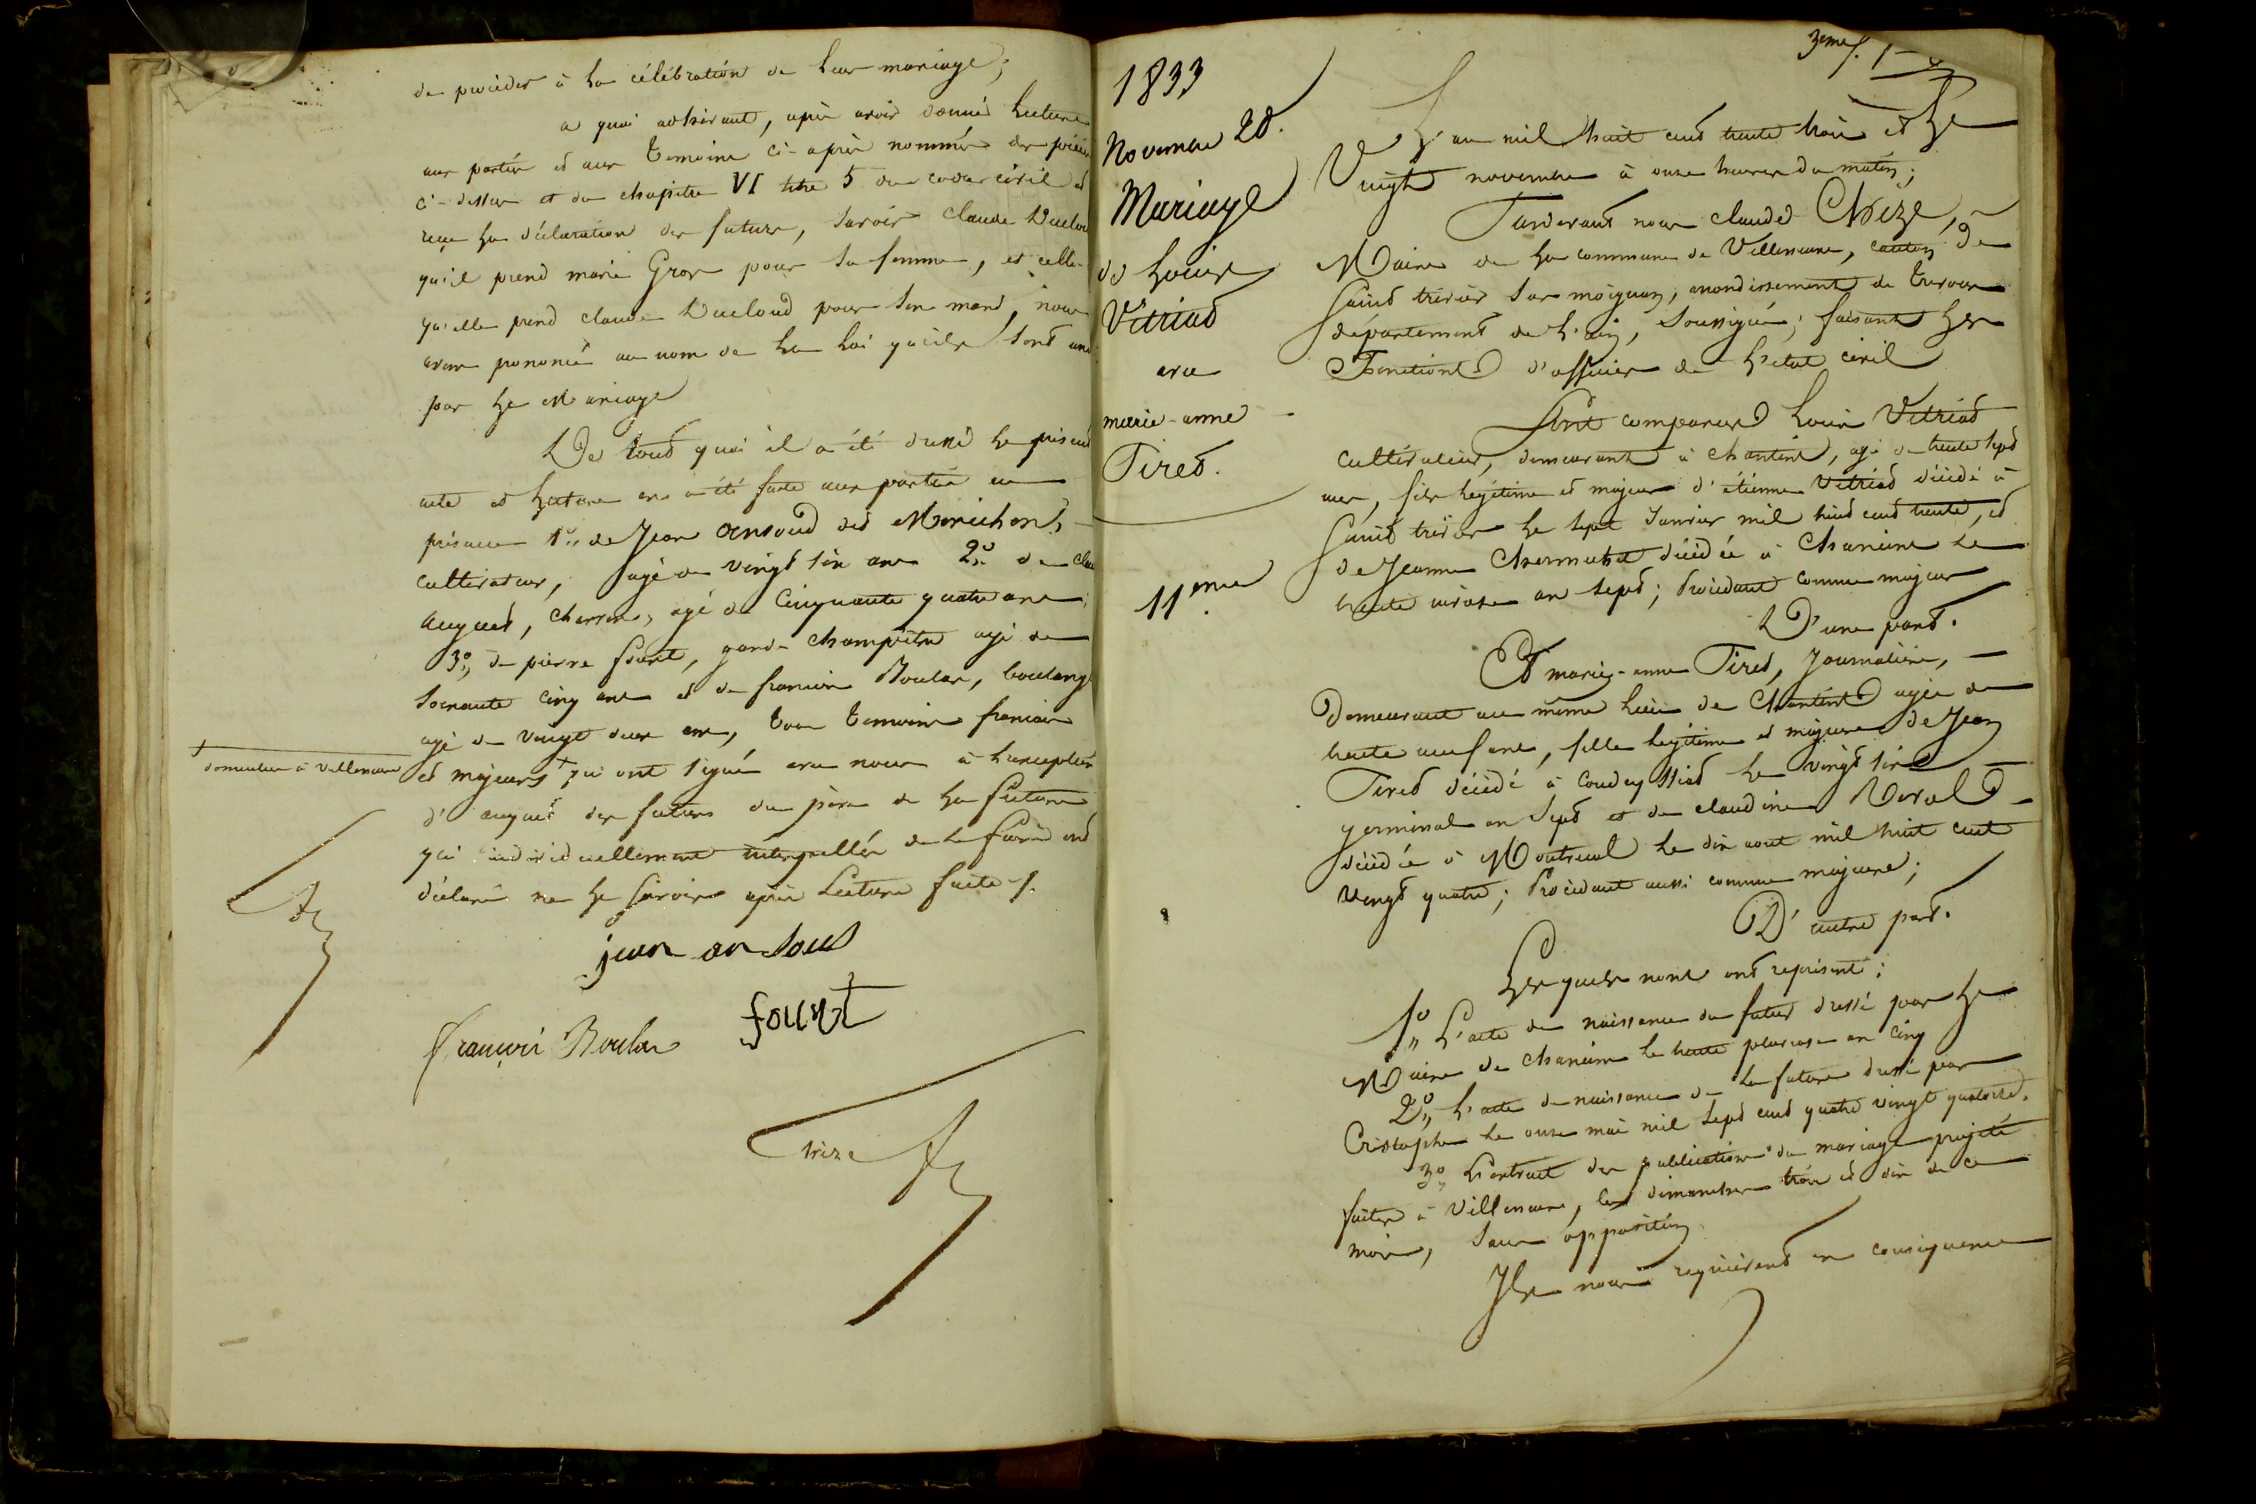 de procéder à la célébration de leur mariage;
a quoi adhérant, après avoir donné lecture
aux parties et aux temoins ci-après nommés des pièces
ci-dessus et du chapitre VI titre 5 du code civil et
reçu la déclaration des futurs, savoir claude Ducloud
qu'il prend marie Gros pour sa femme, et celle-
qu'elle prend claude Ducloud pour son mari, nous
avons prononcé au nom de la loi qu'ils sont unis
par le Mariage
De tout quoi il a été dressé le présent
acte et lecture en a été faite aux parties en
présence 1° de Jean Ansoud dit Monichon,
cultivateur, agé de vingt six ans 2° de claude
auguet, charron, agé de Cinquante quatre ans;
3° de pierre fouret, garde champêtre agé de
soixante cinq ans et de francois Boular, boulanger
agé de vingt deux ans, tous temoins francais
et majeurs + qui ont signé avec nous à l'exception
+ domicilies à Villeneuve
d'auguet des futurs du père de la future
qui individuellement interpellés de le faire ont
déclaré ne le savoir après lecture faite ./.
jean an soud
françois Boular
fouret
Chize
1833
Novembre 20.
Mariage
de louis
Vitriat
avec
marie-anne
Tiret.
11eme
3eme f.
L'an mil huit cent trente trois et le
Vingt novembre à onze heures du matin;
Pardevant nous claude Chize,
Maire de la commune de Villeneuve, canton de
Saint trivier sur moignans, arrondissement de trevoux
département de l'ain, soussigné; faisant les
Fonctions d'officier de l'etat civil
Sont comparus louis Vitriat
cultivateur, demeurant à chantin, agé de trente sept
ans, fils legitime et majeur d'étienne Vitriat décédé à
Saint trivier le sept Janvier mil huit cent trente, et
de Jeanne décédée à Chaneins le
trente nivose an sept; Procédant comme majeur
D'une part.
Et marie-anne Tiret, Journalière,
Demeurant au même lieu de Chantin agée de
trente neuf ans, fille legitime et majeure de Jean
Tiret décédé à Condeyssiat le vingt six
germinal an Sept et de claudine
décédée à le dix aout mil huit cent
vingt quatre; Procédant aussi comme majeure;
D'autre part.
Lesquels nous ont représenté:
1° L'acte de naissance du futur dressé par le
Maire de chaneins le trente pluviose an cinq
2° l'acte de naissance de la future dressé par
Cristophe le onze mai mil sept cent quatre vingt quatorze.
3° L'extrait des publications du mariage projeté
faites à Villeneuve, les dimanches trois et dix de ce
mois, sans opposition
Ils nous requièrent en conséquence